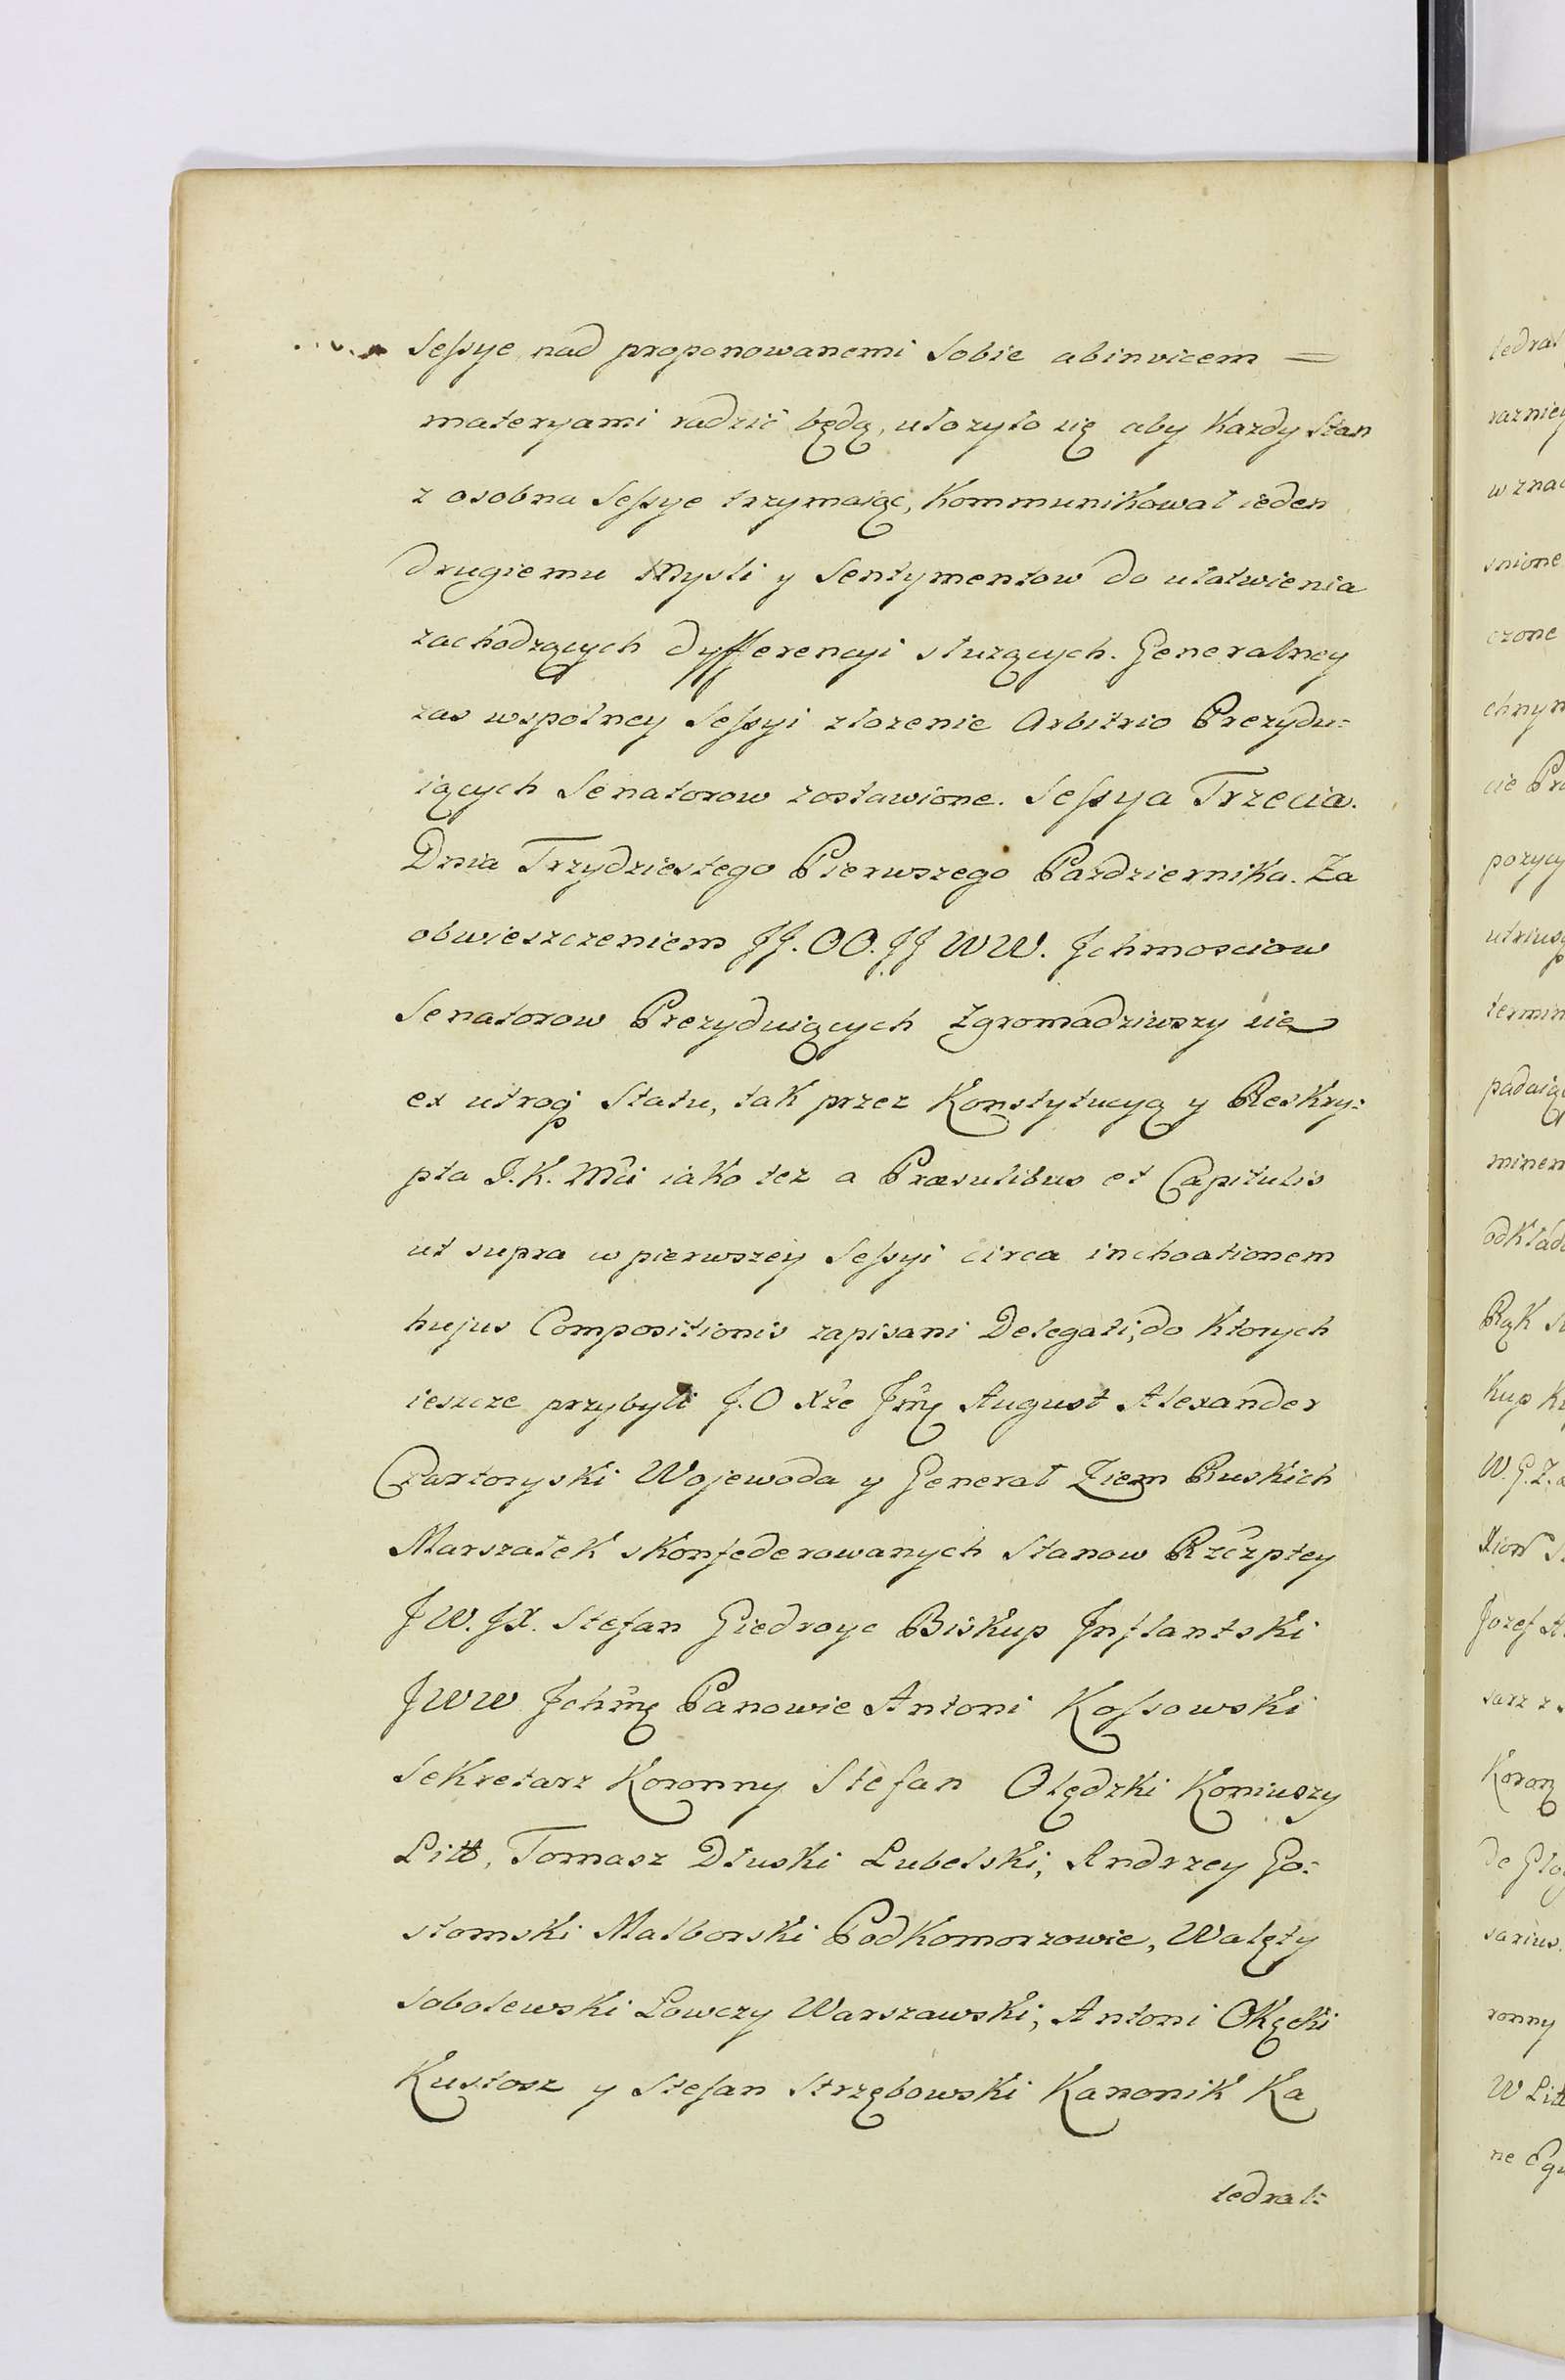 Sessye nad proponowanemi sobie abinvicem =
materyami radzić będą, ułozyło się aby Kazdy Stan
z osobna Sessye trzymaiąc, Kommunikował ieden
drugiemu Mysli y Sentymentow do ułatwienia
zachodzących dyfferencyi słuzących. Generalney
zas wspolney Sessyi złozenie Arbitrio Prezydu=
iących Senatorow zostawione. Sessya Trzecia.
Dnia Trzydziestego Pierwszego Pazdziernika. Za
obwieszczeniem JJ. OO. JJ WW. Jchmosciow
Senatorow Prezyduiących Zgromadziwszy się
ex utroq Statu, tak przez Konstytucyą y Reskry=
pta J. K. Mci iako tez a Præsulibus et Capitulis
ut supra w pierwszey Sessyi circa inchoationem
hujus Compositionis zapisani Delegati; do Ktorych
ieszcze przybyli J. O Xże Jmę August Alexander
Czartoryski Wojewoda y Generał Ziem Ruskich
Marszałek skonfederowanych Stanow Rzczptey
JW. JX. Stefan Giedroyc Biskup Jnflantski
JWW Jchmę Panowie Antoni Kossowski
Sekretarz Koronny Stefan Olędzki Koniuszy
Litt, Tomasz Dłuski Lubelski, Andrzey Go=
stomski Malborski Podkomorzowie, Walęty
Sobolewski Łowczy Warszawski, Antoni Okęcki
Kustosz y Stefan Strzębowski Kanonik Ka
tedral:
tedral
W znac
snione
czone
chnym
cie Pr
pozycy
utriusq
termin
padaią
minem
odkład
Rąk
Kup K
W. G. Z.
Jozef A
sarz z
Koron
de Gło
sarius.
ronny
W Litt